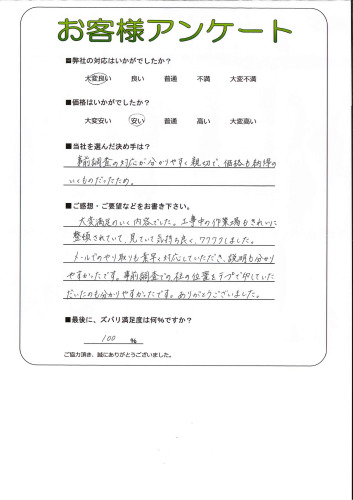 お客様アンケート
■弊社の対応はいかがでしたか?
大変良い 良い 普通 不満 大変不満
■価格はいかがでしたか?
大変安い 安い 普通 高い 大変高い
■当社を選んだ決め手は?
事前調査の対応が分かりやすく親切で、価格も納得の
いくものだったため。
■ご感想・ご要望などをお書き下さい。
大変満足のいく内容でした。工事中の作業場もきれいに
整頓されていて、見ていて気持ち良く、ワクワクしました。
メールでのやり取りも素早く対応していただき、説明も分かり
やすかったです。事前調査での柱の位置をテープで印していた
だいたのも分かりやすかったです。ありがとうございました。
■最後に、ズバリ満足度は何%ですか?
100 %
ご協力頂き、誠にありがとうございました。